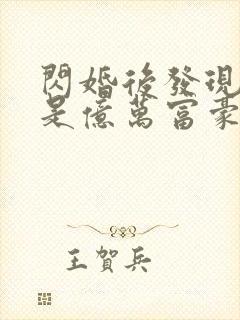 閃婚後發現
是億萬富豪
王賀兵